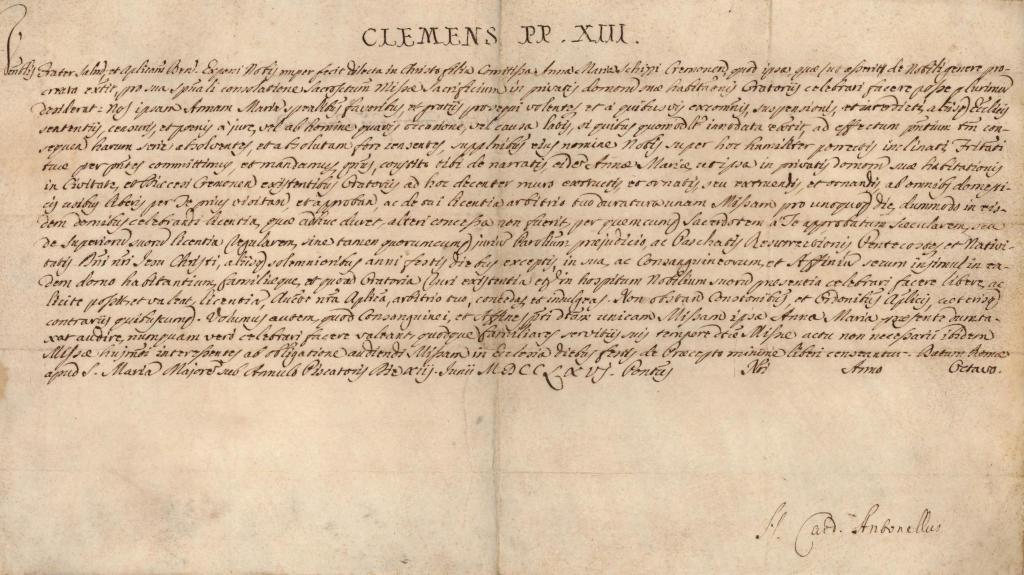 CLEMENS PP. XIII.
Frater Salm̃, et Aplicam Ben. Exponi Nobis nuper fecit dilecta in Christo filia Comitissa Anna Maria Schizzi Cremonen, quod ipsa, quæ de Nobili genere pro-
creata extit, pro sua spũali consolatione Sacrosctum Missæ Sacrificium in privatis domorum suæ habitationis Oratoriis celebrari facere posse plurimum
desiderat. Nos ipsam Annam Mariam spealibus favoribus et gratiis prosequi volentes, et a quibusvis excomnis, suspensionis, et interdicti, aliisq Ecclicis
sententiis, censuris, et poenis a jure, vel ab homine quavis occasione, vel causa latis, si quibus quomodlt innodata existit, ad effectum pntium tm con-
sequen harum serie absolventes, et absolutam fore censentes, supplicibus ejus nomine Nobis super hoc humiliter porrectis inclinati Frãitati
tuæ per pñtes committimus, et mandamus, qtus, constito tibi de narratis, eidem Annæ Mariæ, ut ipsa in privatis domorum suæ habitationis
in Civitate, et Dioecesi Cremonen existentibus Oratoriis ad hoc decenter muro extructis et ornatis, seu extruendis, et ornandis ab omnibus domesti-
cis usibus liberis, per Te prius visitan, et approban, ac de tui licentia arbitrio tuo duratura unam Missam pro unoquoq die, dummodo in eis-
dem domibus celebrandi licentia, quæ adhuc duret, alteri concessa non fuerit, per quemcunq Sacerdotem a Te approbatum Sæcularem, seu
de Superiorum suorum licentia Regularem, sine tamen quorumcunq jurium Parolium præjudicio, ac Paschatis Resurrectionis, Pentecostes, et Nativi-
tatis Dñi nri Jesu Christi, aliisq solemnioribus anni festis diebus exceptis, in sua, ac Consanguineorum, et Affinium secum insimul in ea-
dem domo habitantium, familiæque, et quoad Oratoria Ruri existentia etiam in hospitum Nobilium suorum præsentia celebrari facere libere, ac
licite possit, et valeat, licentiam, Aucte nra Aplica, arbitrio tuo, concedas, et indulgeas. Non obstan Constonibus, et Ordinibus Aplicis, ceterisq
contrariis quibuscunq. Volumus autem, quod Consanguinei, et Affines pti dtam unicam Missam ipsa Anna Maria præsente dumta-
xat audire, numquam vero celebrari facere valeant, quodque familiares servitiis suis tempore dtæ Missæ actu non necessarii ibidem
Missæ hujusmodi interessentes ab obligatione audiendi Missam in Ecclesia diebus festis de Præcepto minime liberi censeantur. Datum Romæ
apud S. Mariam Majorem sub Annulo Piscatoris Die XIII. Junii MDCCLXVI. Pontus Nri Anno Octavo.
Card. Antonellus